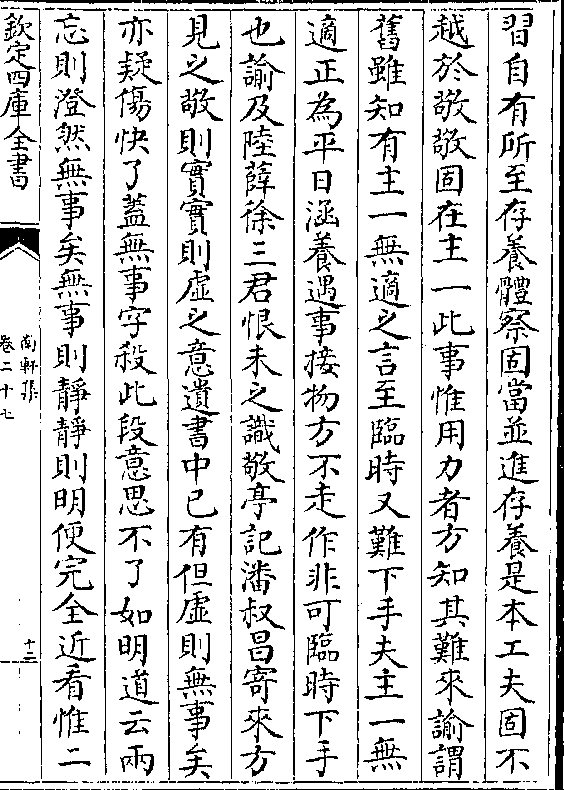 習自有所至存養體察固當並進存養是本工夫固不
越於敬敬固在主一此事惟用力者方知其難來諭謂
舊雖知有主一無適之言至臨時又難下手夫主一無
適正為平日涵養遇事接物方不走作非可臨時下手
也諭及陸薛徐三君恨未之識敬亭記潘叔昌寄來方
見之敬則實實則虛之意遺書中已有但虛則無事矣
亦疑傷快了蓋無事字殺此段意思不了如明道云兩
忘則澄然無事矣無事則靜靜則明便完全近看惟二
欽定四庫全書
南軒集
卷二十七
十三